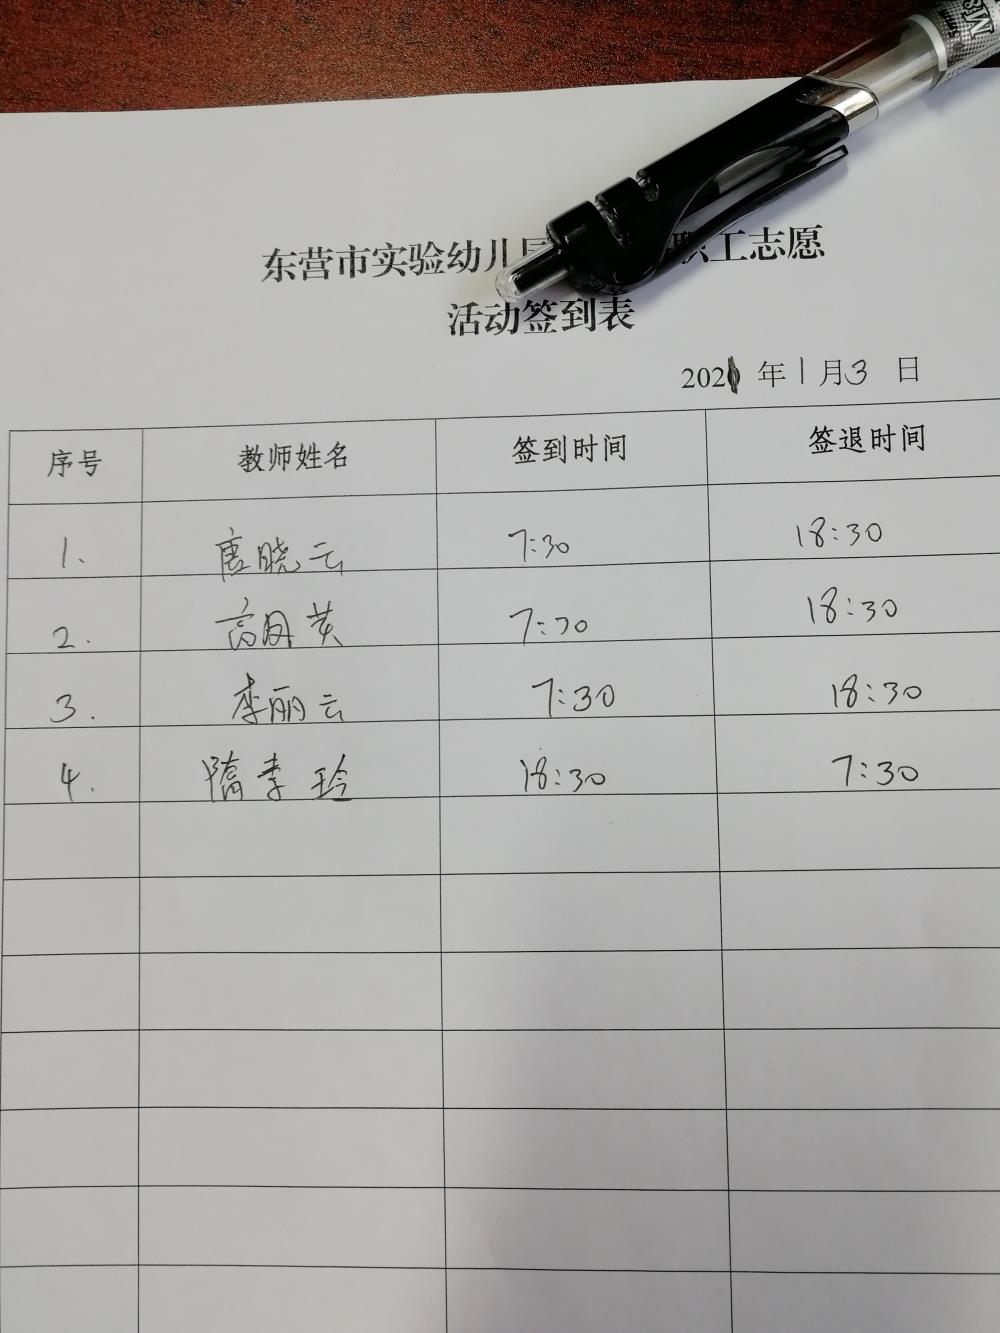 东营市实验幼儿园 职工志愿
活动签到表
2021 年 1 月 3 日
序号 教师姓名 签到时间 签退时间
1. 唐晓云 7:30 18:30
2. 高月英 7:30 18:30
3. 李丽云 7:30 18:30
4. 隋李玲 18:30 7:30